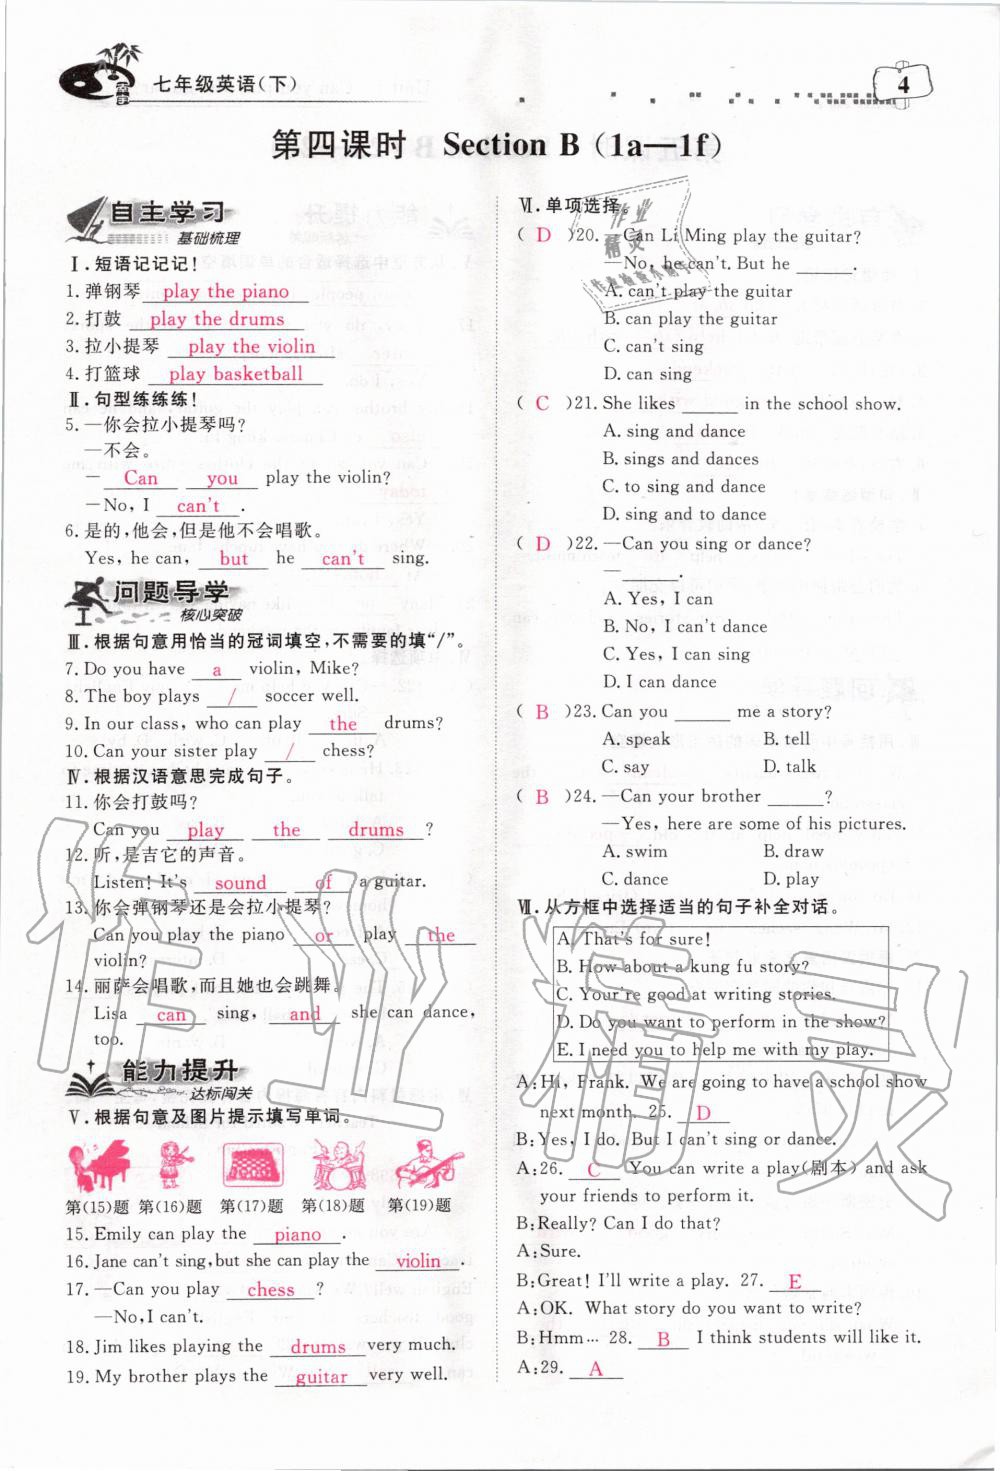 七年级英语(下)
4
第四课时 Section B (1a—1f)
自主学习
基础梳理
Ⅰ.短语记记记!
1. 弹钢琴 play the piano
2. 打鼓 play the drums
3. 拉小提琴 play the violin
4. 打篮球 play basketball
Ⅱ.句型练练练!
5. —你会拉小提琴吗?
—不会。
— Can you play the violin?
—No, I can't.
6. 是的,他会,但是他不会唱歌。
Yes, he can, but he can't sing.
问题导学
核心突破
Ⅲ.根据句意用恰当的冠词填空,不需要的填“/”。
7. Do you have a violin, Mike?
8. The boy plays / soccer well.
9. In our class, who can play the drums?
10. Can your sister play / chess?
Ⅳ.根据汉语意思完成句子。
11. 你会打鼓吗?
Can you play the drums ?
12. 听,是吉它的声音。
Listen! It's sound of a guitar.
13. 你会弹钢琴还是会拉小提琴?
Can you play the piano or play the
violin?
14. 丽萨会唱歌,而且她也会跳舞。
Lisa can sing, and she can dance,
too.
能力提升
达标闯关
Ⅴ.根据句意及图片提示填写单词。
第(15)题 第(16)题 第(17)题 第(18)题 第(19)题
15. Emily can play the piano .
16. Jane can't sing, but she can play the violin.
17. —Can you play chess ?
—No, I can't.
18. Jim likes playing the drums very much.
19. My brother plays the guitar very well.
Ⅵ.单项选择。
( D )20. —Can Li Ming play the guitar?
—No, he can't. But he ______.
A. can't play the guitar
B. can play the guitar
C. can't sing
D. can sing
( C )21. She likes ______ in the school show.
A. sing and dance
B. sings and dances
C. to sing and dance
D. sing and to dance
( D )22. —Can you sing or dance?
—______.
A. Yes, I can
B. No, I can't dance
C. Yes, I can sing
D. I can dance
( B )23. Can you ______ me a story?
A. speak B. tell
C. say D. talk
( B )24. —Can your brother ______?
—Yes, here are some of his pictures.
A. swim B. draw
C. dance D. play
Ⅶ.从方框中选择适当的句子补全对话。
A. That's for sure!
B. How about a kung fu story?
C. Your're good at writing stories.
D. Do you want to perform in the show?
E. I need you to help me with my play.
A: Hi, Frank. We are going to have a school show
next month. 25. D
B: Yes, I do. But I can't sing or dance.
A: 26. C You can write a play(剧本) and ask
your friends to perform it.
B: Really? Can I do that?
A: Sure.
B: Great! I'll write a play. 27. E
A: OK. What story do you want to write?
B: Hmm… 28. B I think students will like it.
A: 29. A
作业精灵